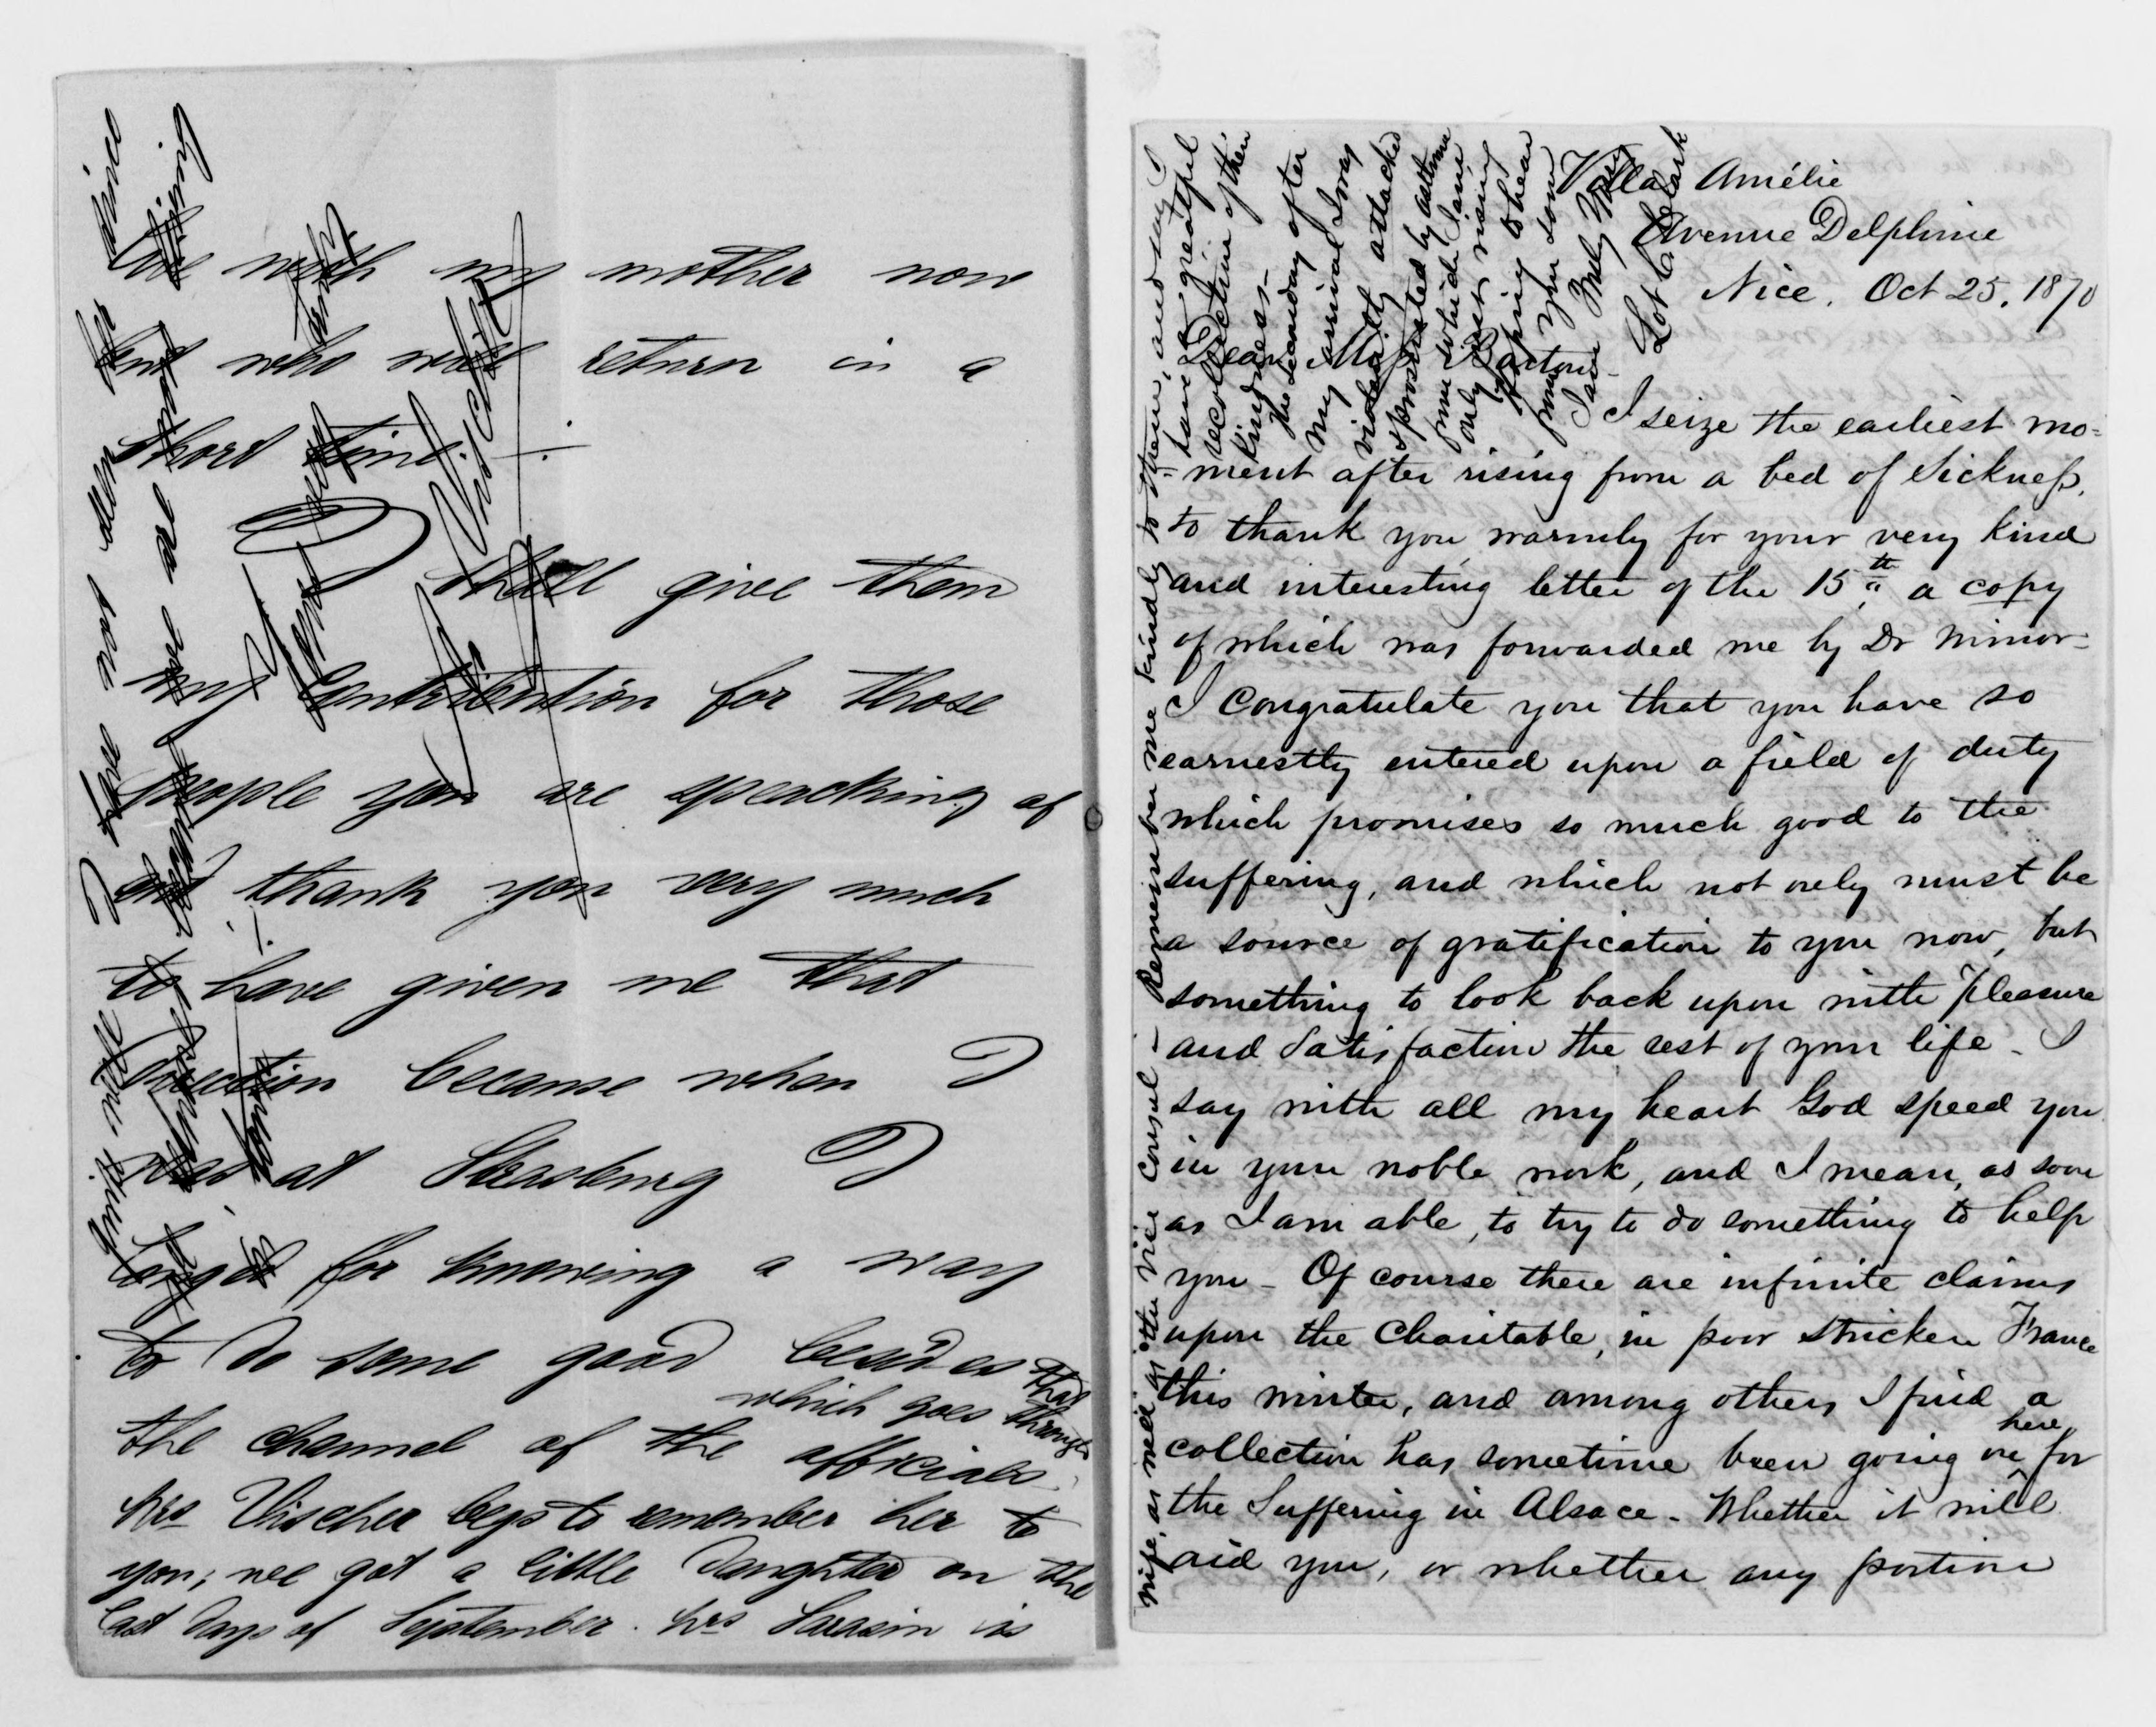 live with my mother now
and who will return in a
short time.
I shall give them
my Contribution for those
people you are speacking of
and thank you very much
to have given me that
Direction because when I
was at Strasburg I
longed for knowing a way
to do some good besides that
which goes through
the channel of the officials.
Mrs Vischer begs to remember her to
you; we got a little Daughter on the
last days of September. Mrs Sarasin is
quite well I have not seen her since
we are
Vischer
Villa Amélie
Avenue Delphine
Nice, Oct 25, 1870
Dear Miss Barton
I seize the earliest mo=
=ment after rising from a bed of sickness,
to thank you warmly for your very kind
and interesting letter of the 15th, a copy
of which was forwarded me by Dr Minor-
I congratulate you that you have so
earnestly entered upon a field of duty
which promises so much good to the
suffering, and which not only must be
a source of gratification to you now, but
something to look back upon with pleasure
and satisfaction the rest of your life - I
say with all my heart God speed you
in your noble work, and I mean, as soon
as I am able, to try to do something to help
you - Of course there are infinite claims
upon the charitable, in poor stricken France
this winter, and among others I find a
collection has sometime been going on here for
the suffering in Alsace - Whether it will
aid you, or whether any portion
wife, as well as the vice consul - Remember me kindly to them, and say I
have a grateful
recollection of their
kindness -
The second day after
my arrival I was
violently attacked
& prostrated by asthma
from which I am
only just rising
Hoping to hear
from you soon
I am truly yours
Lot C Clark